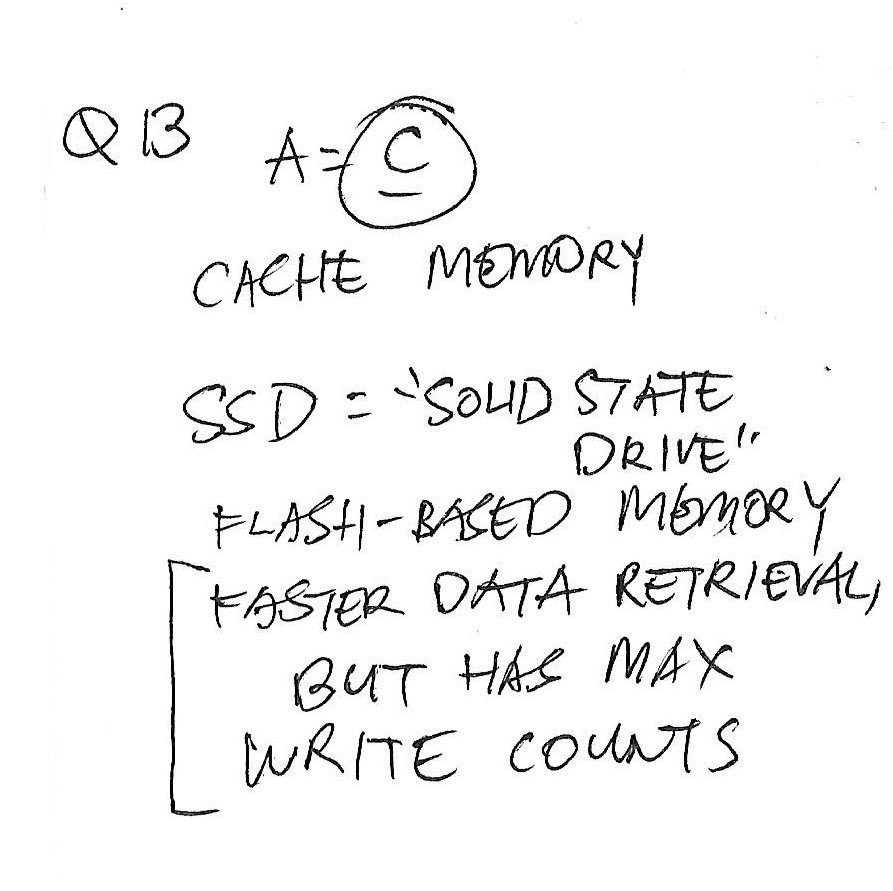 Q 13
A = C
CACHE MEMORY
SSD = "SOLID STATE
DRIVE"
FLASH-BASED MEMORY
FASTER DATA RETRIEVAL,
BUT HAS MAX
WRITE COUNTS